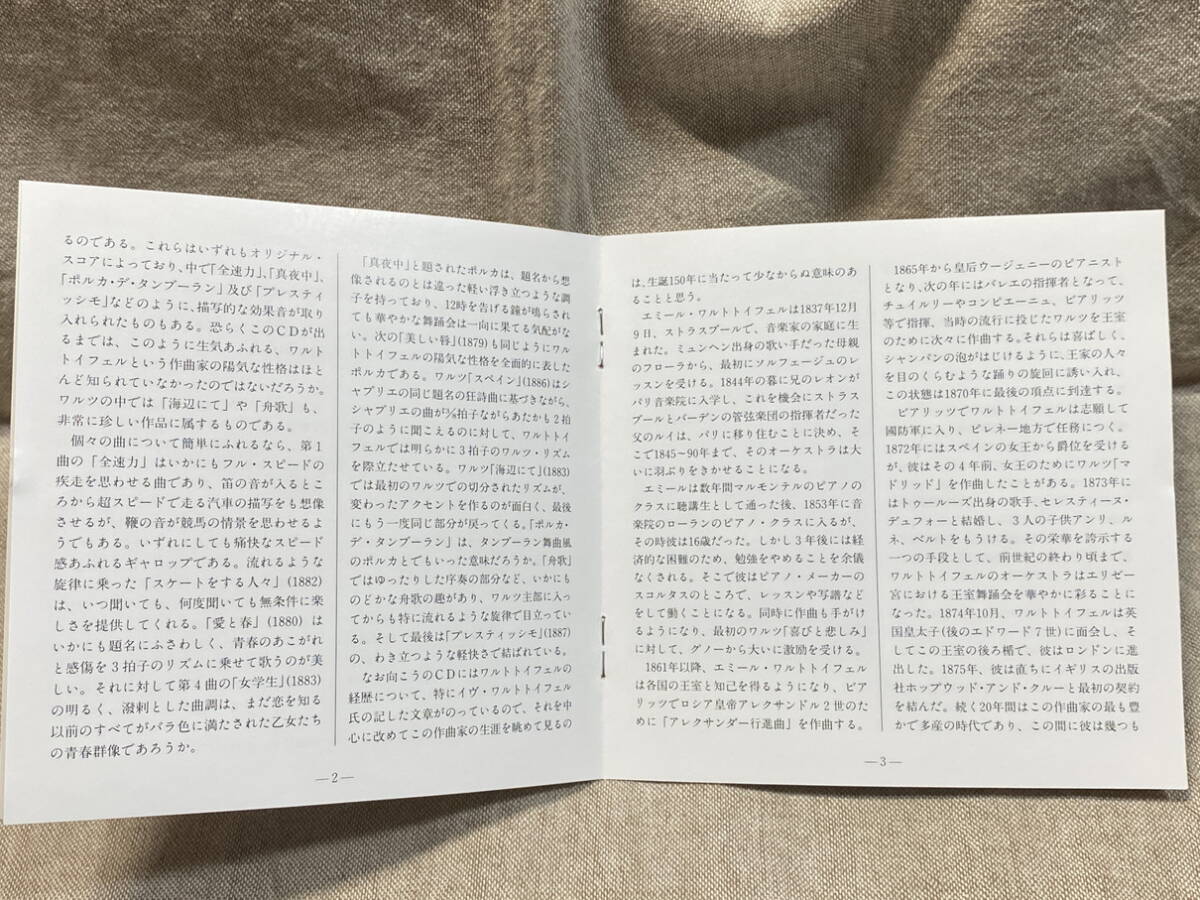 るのである。これらはいずれもオリジナル・
スコアによっており、中で「全速力」、「真夜中」、
「ポルカ・デ・タンブーラン」及び「プレスティ
ッシモ」などのように、描写的な効果音が取り
入れられたものもある。恐らくこのCDが出
るまでは、このように生気あふれる、ワルト
トイフェルという作曲家の陽気な性格はほと
んど知られていなかったのではないだろうか。
ワルツの中では「海辺にて」や「舟歌」も、
非常に珍しい作品に属するものである。
個々の曲について簡単にふれるなら、第1
曲の「全速力」はいかにもフル・スピードの
疾走を思わせる曲であり、笛の音が入るとこ
ろから超スピードで走る汽車の描写をも想像
させるが、鞭の音が競馬の情景を思わせるよ
うでもある。いずれにしても痛快なスピード
感あふれるギャロップである。流れるような
旋律に乗った「スケートをする人々」(1882)
は、いつ聞いても、何度聞いても無条件に楽
しさを提供してくれる。「愛と春」(1880)は
いかにも題名にふさわしく、青春のあこがれ
と感傷を3拍子のリズムに乗せて歌うのが美
しい。それに対して第4曲の「女学生」(1883)
の明るく、潑剌とした曲調は、まだ恋を知る
以前のすべてがバラ色に満たされた乙女たち
の青春群像であろうか。
「真夜中」と題されたポルカは、題名から想
像されるのとは違った軽い浮き立つような調
子を持っており、12時を告げる鐘が鳴らされ
ても華やかな舞踊会は一向に果てる気配がな
い。次の「美しい唇」(1879)も同じようにワル
トトイフェルの陽気な性格を全面的に表した
ポルカである。ワルツ「スペイン」(1886)はシ
ャブリエの同じ題名の狂詩曲に基づきながら、
シャブリエの曲が⅜拍子ながらあたかも2拍
子のように聞こえるのに対して、ワルトトイ
フェルでは明らかに3拍子のワルツ・リズム
を際立たせている。ワルツ「海辺にて」(1883)
では最初のワルツでの切分されたリズムが、
変わったアクセントを作るのが面白く、最後
にもう一度同じ部分が戻ってくる。「ポルカ・
デ・タンブーラン」は、タンブーラン舞曲風
のポルカとでもいった意味だろうか。「舟歌」
ではゆったりした序奏の部分など、いかにも
のどかな舟歌の趣があり、ワルツ主部に入っ
てからも特に流れるような旋律で目立ってい
る。そして最後は「プレスティッシモ」(1887)
の、わき立つような軽快さで結ばれている。
なお向こうのCDにはワルトトイフェルの
経歴について、特にイヴ・ワルトトイフェル
氏の記した文章がのっているので、それを中
心に改めてこの作曲家の生涯を眺めて見るの
—2—
は、生誕150年に当たって少なからぬ意味のあ
ることと思う。
エミール・ワルトトイフェルは1837年12月
9日、ストラスブールで、音楽家の家庭に生
まれた。ミュンヘン出身の歌い手だった母親
のフローラから、最初にソルフェージュのレ
ッスンを受ける。1844年の暮に兄のレオンが
パリ音楽院に入学し、これを機会にストラス
ブールとバーデンの管弦楽団の指揮者だった
父のルイは、パリに移り住むことに決め、そ
こで1845〜90年まで、そのオーケストラは大
いに羽ぶりをきかせることになる。
エミールは数年間マルモンテルのピアノの
クラスに聴講生として通った後、1853年に音
楽院のローランのピアノ・クラスに入るが、
その時彼は16歳だった。しかし3年後には経
済的な困難のため、勉強をやめることを余儀
なくされる。そこで彼はピアノ・メーカーの
スコルタスのところで、レッスンや写譜など
をして働くことになる。同時に作曲も手がけ
るようになり、最初のワルツ「喜びと悲しみ」
に対して、グノーから大いに激励を受ける。
1861年以降、エミール・ワルトトイフェル
は各国の王室と知己を得るようになり、ビア
リッツでロシア皇帝アレクサンドル2世のた
めに「アレクサンダー行進曲」を作曲する。
1865年から皇后ウージェニーのピアニスト
となり、次の年にはバレエの指揮者となって、
チュイルリーやコンピエーニュ、ビアリッツ
等で指揮、当時の流行に投じたワルツを王室
のために次々に作曲する。それらは喜ばしく、
シャンパンの泡がはじけるように、王家の人々
を目のくらむような踊りの旋回に誘い入れ、
この状態は1870年に最後の頂点に到達する。
ビアリッツでワルトトイフェルは志願して
國防軍に入り、ピレネー地方で任務につく。
1872年にはスペインの女王から爵位を受ける
が、彼はその4年前、女王のためにワルツ「マ
ドリッド」を作曲したことがある。1873年に
はトゥールーズ出身の歌手、セレスティーヌ・
デュフォーと結婚し、3人の子供アンリ、ル
ネ、ベルトをもうける。その栄華を誇示する
一つの手段として、前世紀の終わり頃まで、
ワルトトイフェルのオーケストラはエリゼー
宮における王室舞踊会を華やかに彩ることに
なった。1874年10月、ワルトトイフェルは英
国皇太子(後のエドワード7世)に面会し、そ
してこの王室の後ろ楯で、彼はロンドンに進
出した。1875年、彼は直ちにイギリスの出版
社ホップウッド・アンド・クルーと最初の契約
を結んだ。続く20年間はこの作曲家の最も豊
かで多産の時代であり、この間に彼は幾つも
—3—